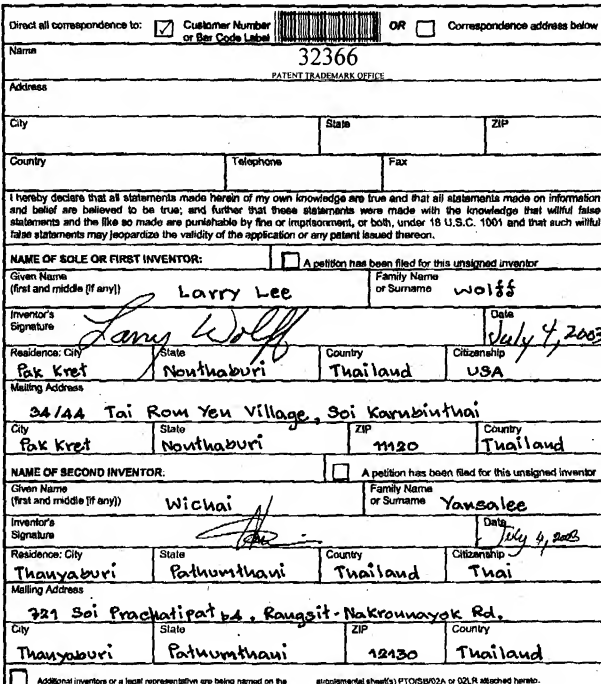 Direct all correspondence to: Customer Number or Bar Code Label OR Correspondence address below
Name
32366
PATENT TRADEMARK OFFICE
Address
City State ZIP
Country Telephone Fax
I hereby declare that all statements made herein of my own knowledge are true and that all statements made on information
and belief are believed to be true; and further that these statements were made with the knowledge that willful false
statements and the like so made are punishable by fine or imprisonment, or both, under 18 U.S.C. 1001 and that such willful
false statements may jeopardize the validity of the application or any patent issued thereon.
NAME OF SOLE OR FIRST INVENTOR: A petition has been filed for this unsigned inventor
Given Name (first and middle [if any]) Larry Lee Family Name or Surname Wolff
Inventor's Signature Larry Wolff Date July 4, 2003
Residence: City State Country Citizenship
Pak Kret Nonthaburi Thailand USA
Mailing Address
34/44 Tai Rom Yen Village, Soi Karnbinthai
City State ZIP Country
Pak Kret Nonthaburi 11120 Thailand
NAME OF SECOND INVENTOR: A petition has been filed for this unsigned inventor
Given Name (first and middle [if any]) Wichai Family Name or Surname Yansalee
Inventor's Signature Date July 4, 2003
Residence: City State Country Citizenship
Thanyaburi Pathumthani Thailand Thai
Mailing Address
721 Soi Prachatipat Rangsit-Nakrounnayok Rd.
City State ZIP Country
Thanyaburi Pathumthani 12130 Thailand
Additional inventors or a legal representative are being named on the supplemental sheet(s) PTO/SB/02A or 02LR attached hereto.